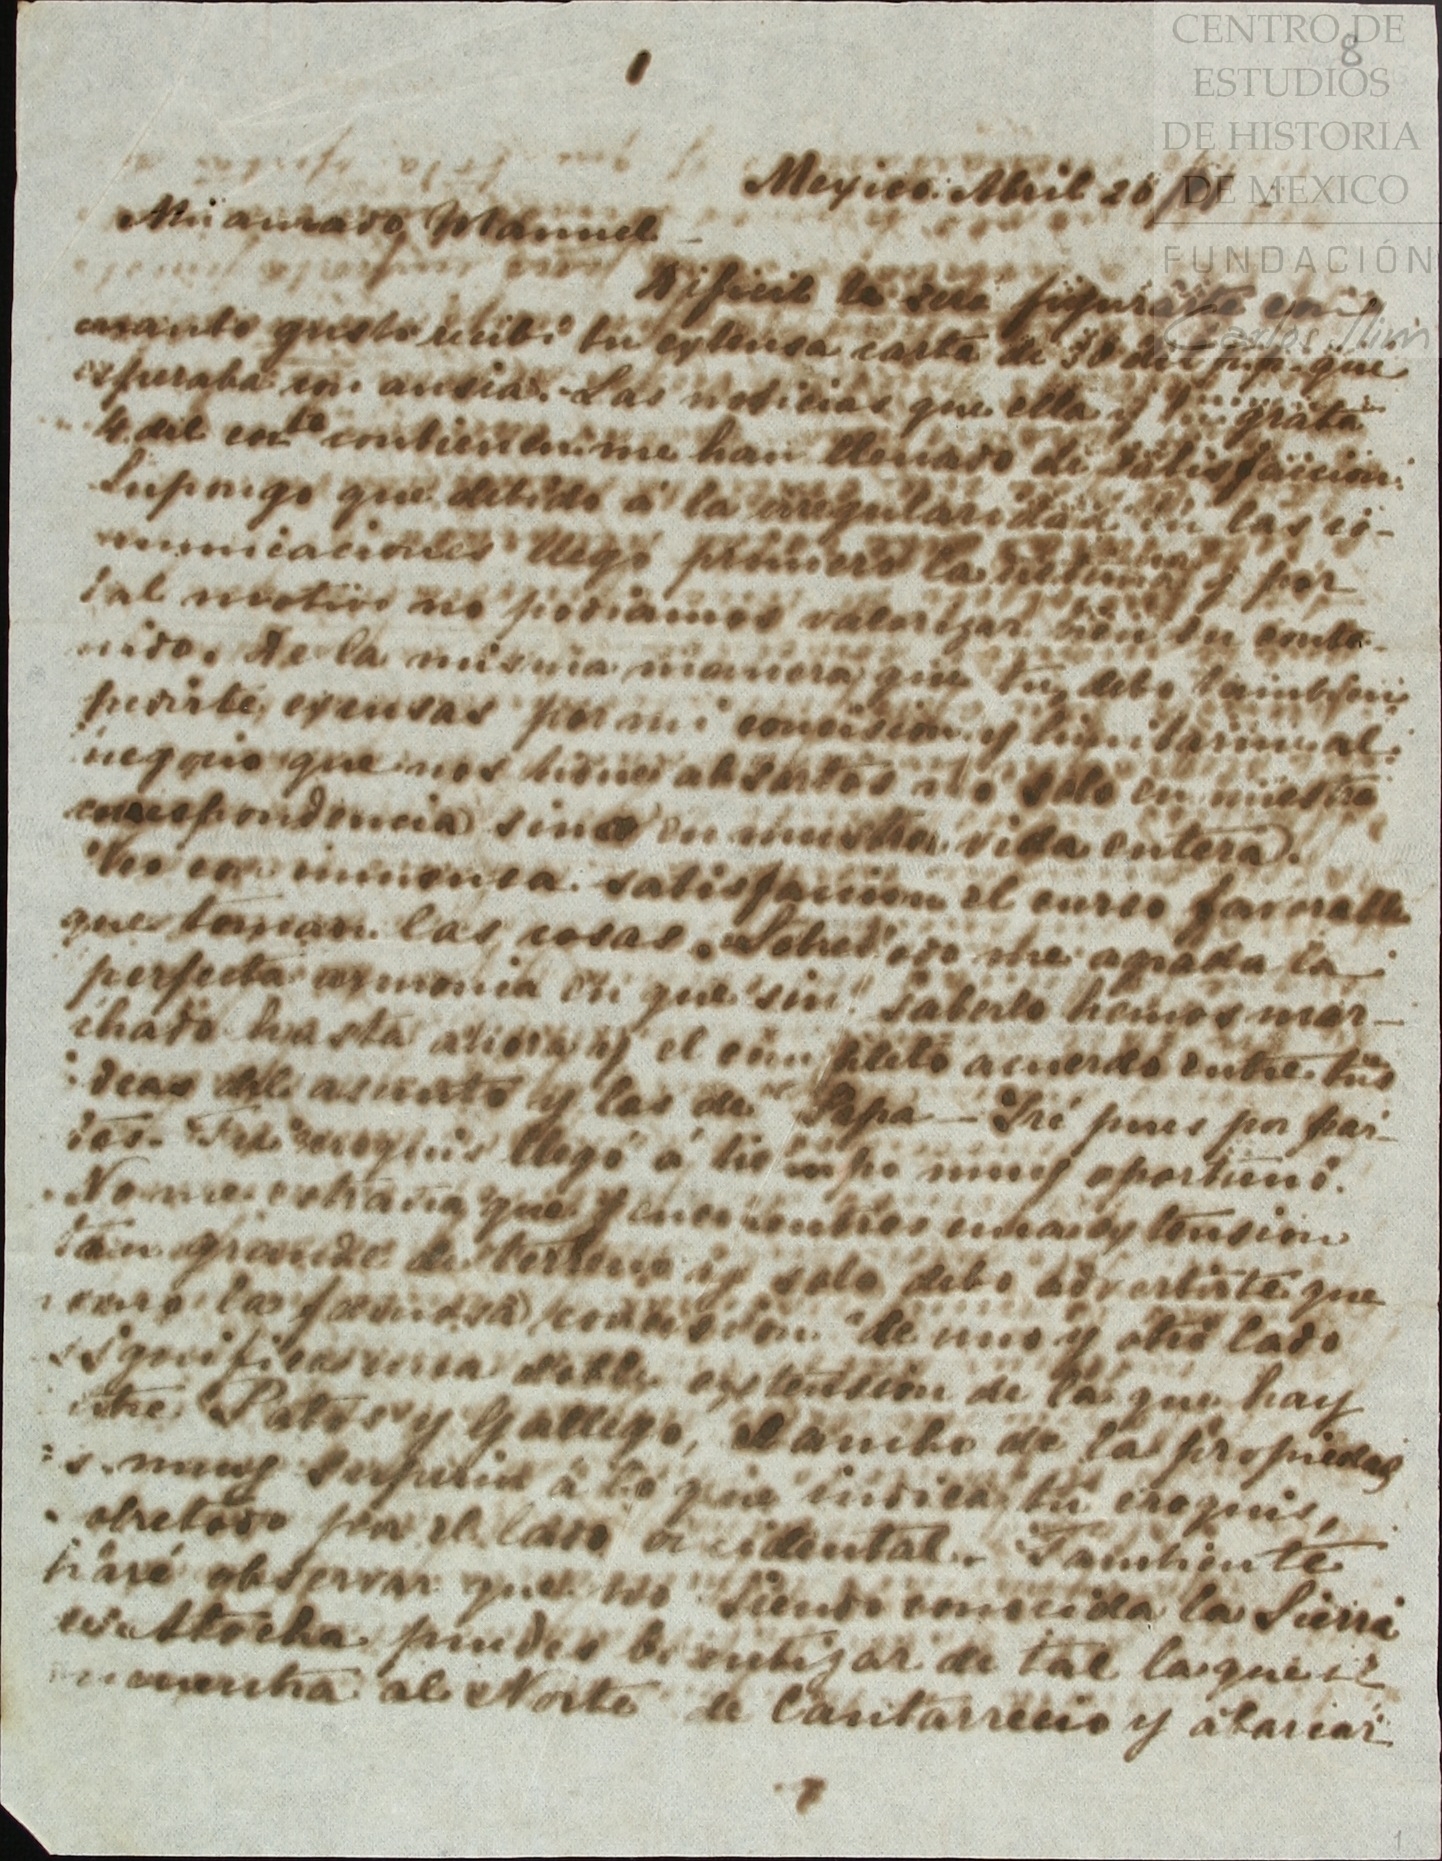 CENTRO DE
ESTUDIOS
DE HISTORIA
DE MEXICO
FUNDACIÓN
Carlos Slim
8
Mexico. Abril 26
Mi amado Manuel
Dificil te sera figurarte con
cuanto gusto recibi tu extensa carta de 30 del p.p. que
esperaba con ansia. Las noticias que ella y tu grata
4 del cor.te contienen me han llenado de satisfaccion.
Supongo que debido á la irregularidad en las co-
municaciones llegó primero la última y por
tal motivo no podiamos valorizar bien su conte-
nido. De la misma manera que tu, debo tambien
pedirte excusas por mi concision y limitarme al
negocio que nos tiene absortos no solo en nuestra
correspondencia sino en nuestra vida entera.
Veo con inmensa satisfaccion el curso favorable
que toman las cosas. Sobre todo me agrada la
perfecta armonia en que sin saberlo hemos mar-
chado hasta ahora y el completo acuerdo entre tus
ideas del asunto y las de Papa - Iré pues por par-
tes. Tu croquis llegó á tiempo muy oportuno.
No me extraña que encuentres una extension
tan grande de terreno y solo debo advertirte que
como la famosa concesion de uno y otro lado
significa una doble extension de la que hay
entre Patos y Gallego, el ancho de la propiedad
es muy superior á lo que indica tu croquis,
sobretodo por el lado occidental. Tambien te
haré observar que no siendo conocida la Sierra
de Atocha puedes bautizar de tal la que se
encuentra al Norte de Cantarrecio y abarcar
1